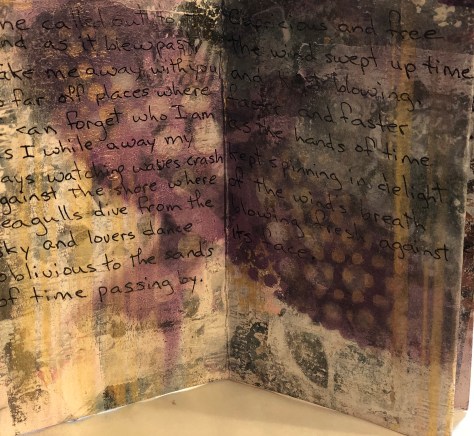 me called out to the
nd as it blew past
ake me away with you
o far off places where
can forget who I am
s I while away my
ays watching waves crash
gainst the shore where
eagulls dive from the
sky and lovers dance
oblivious to the sands
of time passing by.
and free
the wind swept up time
and kept blowing,
faster and faster
as the hands of time
kept spinning in delight
of the wind's breath
blowing fresh against
its face.